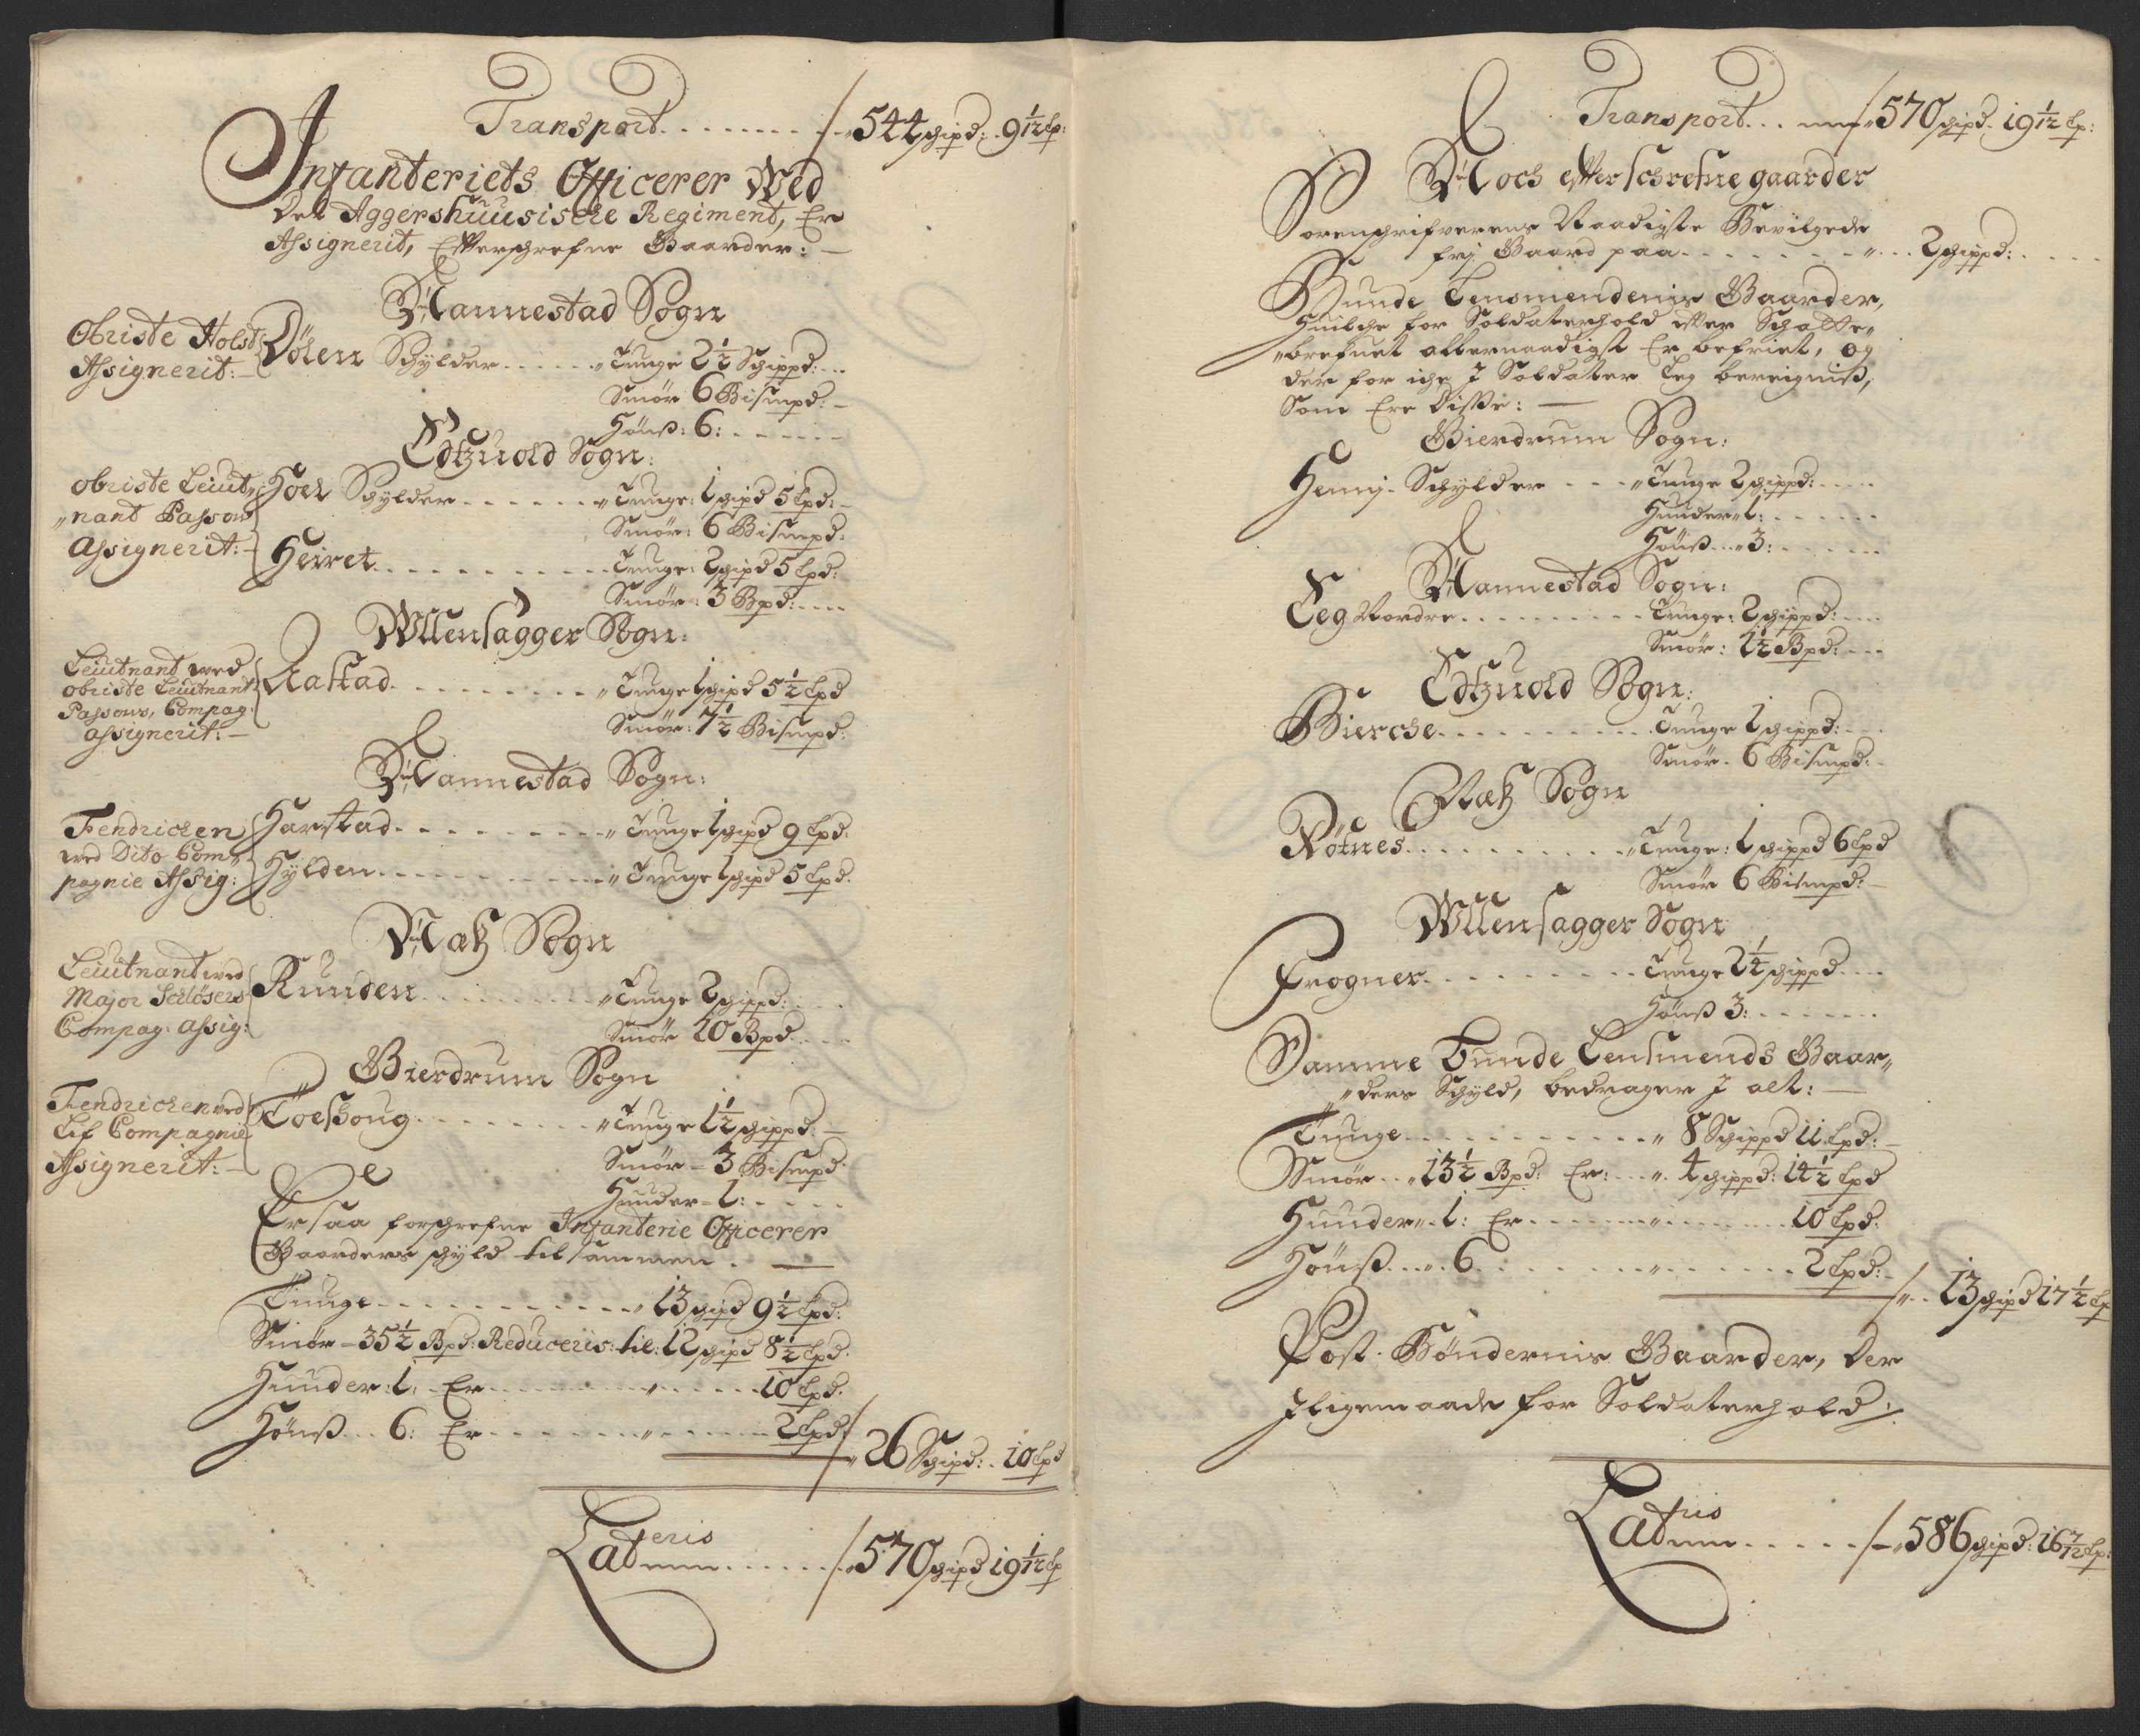 Transport. . . . . . . . . 544 schipd: 9 1/12 Lp:
Infanteriets Officerer Wed
Det Aggershuusische Regiment, Er
Assignerit, Effterschrefne Gaarder: —
Nannestad Sogn
Obriste Holst
Assignerit: —
Dölen Schylder . . . . . . Tunge 2 1/2 Schippd: . . .
Smör 6 Bismpd: —
Höns: 6: . . . . . .
Edtzuold Sogn:
obriste Leiut„
„nant Passow
Assignerit: —
Hoel Schylder . . . . . . . Tunge: 1 schipd 5 Lpd: —
Smör: 6 Bismpd:
Heiret . . . . . . . . . . Tunge: 2 schipd 5 Lpd:
Smör: 3 Bpd: . . . .
Wllensagger Sogn:
Leiutnant wed
obriste Leiutnant
Passows, Compag:
assignerit: —
Raktad . . . . . . . . . „ Tunge 1 schipd 5 1/2 Lpd
Smör: 7 1/2 Bismpd:
Nannestad Sogn:
Fendrichen
wed Dito Com„
pagnie Assig:
Harstad . . . . . . . . . „ Tunge 1 schipd 9 Lpd:
Hylden . . . . . . . . . . „ Tunge 1 schipd 5 Lpd.
Næs Sogn
Leiutnant wed
Major Schlösers
Compag: assig:
Runden . . . . . . . . „ Tunge 2 schippd: . . .
Smör 10 Bpd . . .
Gierdrum Sogn
Fendrichen wed
Lif Compagnie
Assignerit: —
. . . . . . . . „ Tunge 1 1/2 schippd: —
Smör — 3 Bismpd:
Huuder — 1: . . . .
Er saa forschrefne Infanterie Officerer
Gaarders schyld til sammen . —
Tunge . . . . . . . . . . . . 13 schipd 9 1/2 Lpd:
Smör — 35 1/2 Bpd: Reduceris: til: 12 schipd 8 1/2 Lpd:
Huuder: 1: Er . . . . . . . „ . . . . . 10 Lpd:
Höns . . 6: Er . . . . . . . „ . . . . . 2 Lpd:
26 Schipd: . 10 Lpd
Lateris
Lat . . . . . . 570 schipd 19 1/12 Lp
Transport . . . 570 schipd. 19 1/12 Lp:
Noch effterschrefne gaarder
Sorenschrifverens Naadigste Bevilgede
frj Gaard paa . . . . . . . . „ . . . 2 schippd: . . . .
Bunde Lensmendenis Gaarder,
Huilche for Soldaterhold effter Schatte„
„brefuet allernaadigst Er befriet, og
der for iche J Soldater Leg bereignis,
Som Ere Disse: —
Gierdrum Sogn:
Hemj. Schylder . . . . „ Tunge 2 schippd: . . . .
Huuder „ 1: . . . . . .
Höns . . „ 3: . . . . . .
Nannestad Sogn:
Leg Nordre . . . . . . . . . . Tunge: 2 schippd: . . .
Smör: 1 1/2 Bpd: . . .
Edtzuold Sogn:
Bierche . . . . . . . . . . . Tunge 1 schippd: . . .
Smör. 6 Bismpd: .
Næs Sogn
Rötnes . . . . . . . . . . . „ Tunge: 1 schippd 6 Lpd
Smör 6 Bismpd: —
Wllensagger Sogn
Frogner . . . . . . . . . . Tunge 2 1/4 schippd . . .
Höns 3: . . . . . . .
Samme Bunde Lensmends Gaar„
„ders Schyld, bedrager J alt: —
Tunge . . . . . . . . . . . „ 8 Schippd 11 Lpd: —
Smör . . „ 13 1/2 Bpd: Er: . . „ . 4 schippd: 14 1/2 Lpd
Huuder „ . 1: Er . . . . . . „ . . . . . . . 10 Lpd:
Höns . . „ . 6 : . . . . . . „ . . . . . . 2 Lpd: —
„ . . 13 schipd 17 1/2 Lp
Post. Böndernis Gaarder, Der
Jligemaade for Soldaterhold ·/.
Latris
Lat . . . . . 586 schipd: 16 7/12 Lp: